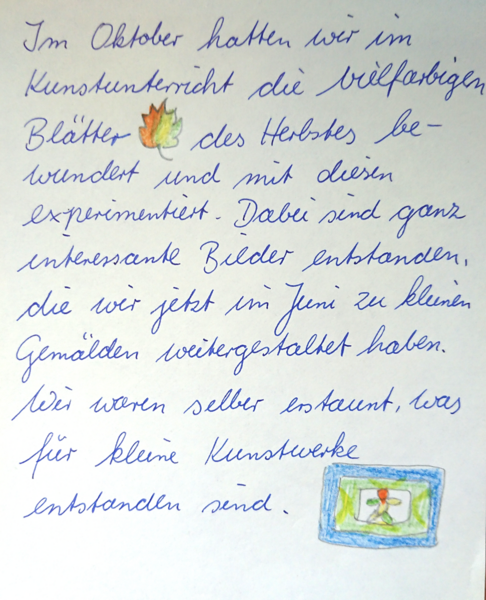 Im Oktober hatten wir im
Kunstunterricht die vielfarbigen
Blätter des Herbstes be-
wundert und mit diesen
experimentiert. Dabei sind ganz
interessante Bilder entstanden,
die wir jetzt im Juni zu kleinen
Gemälden weitergestaltet haben.
Wir waren selber erstaunt, was
für kleine Kunstwerke
entstanden sind.